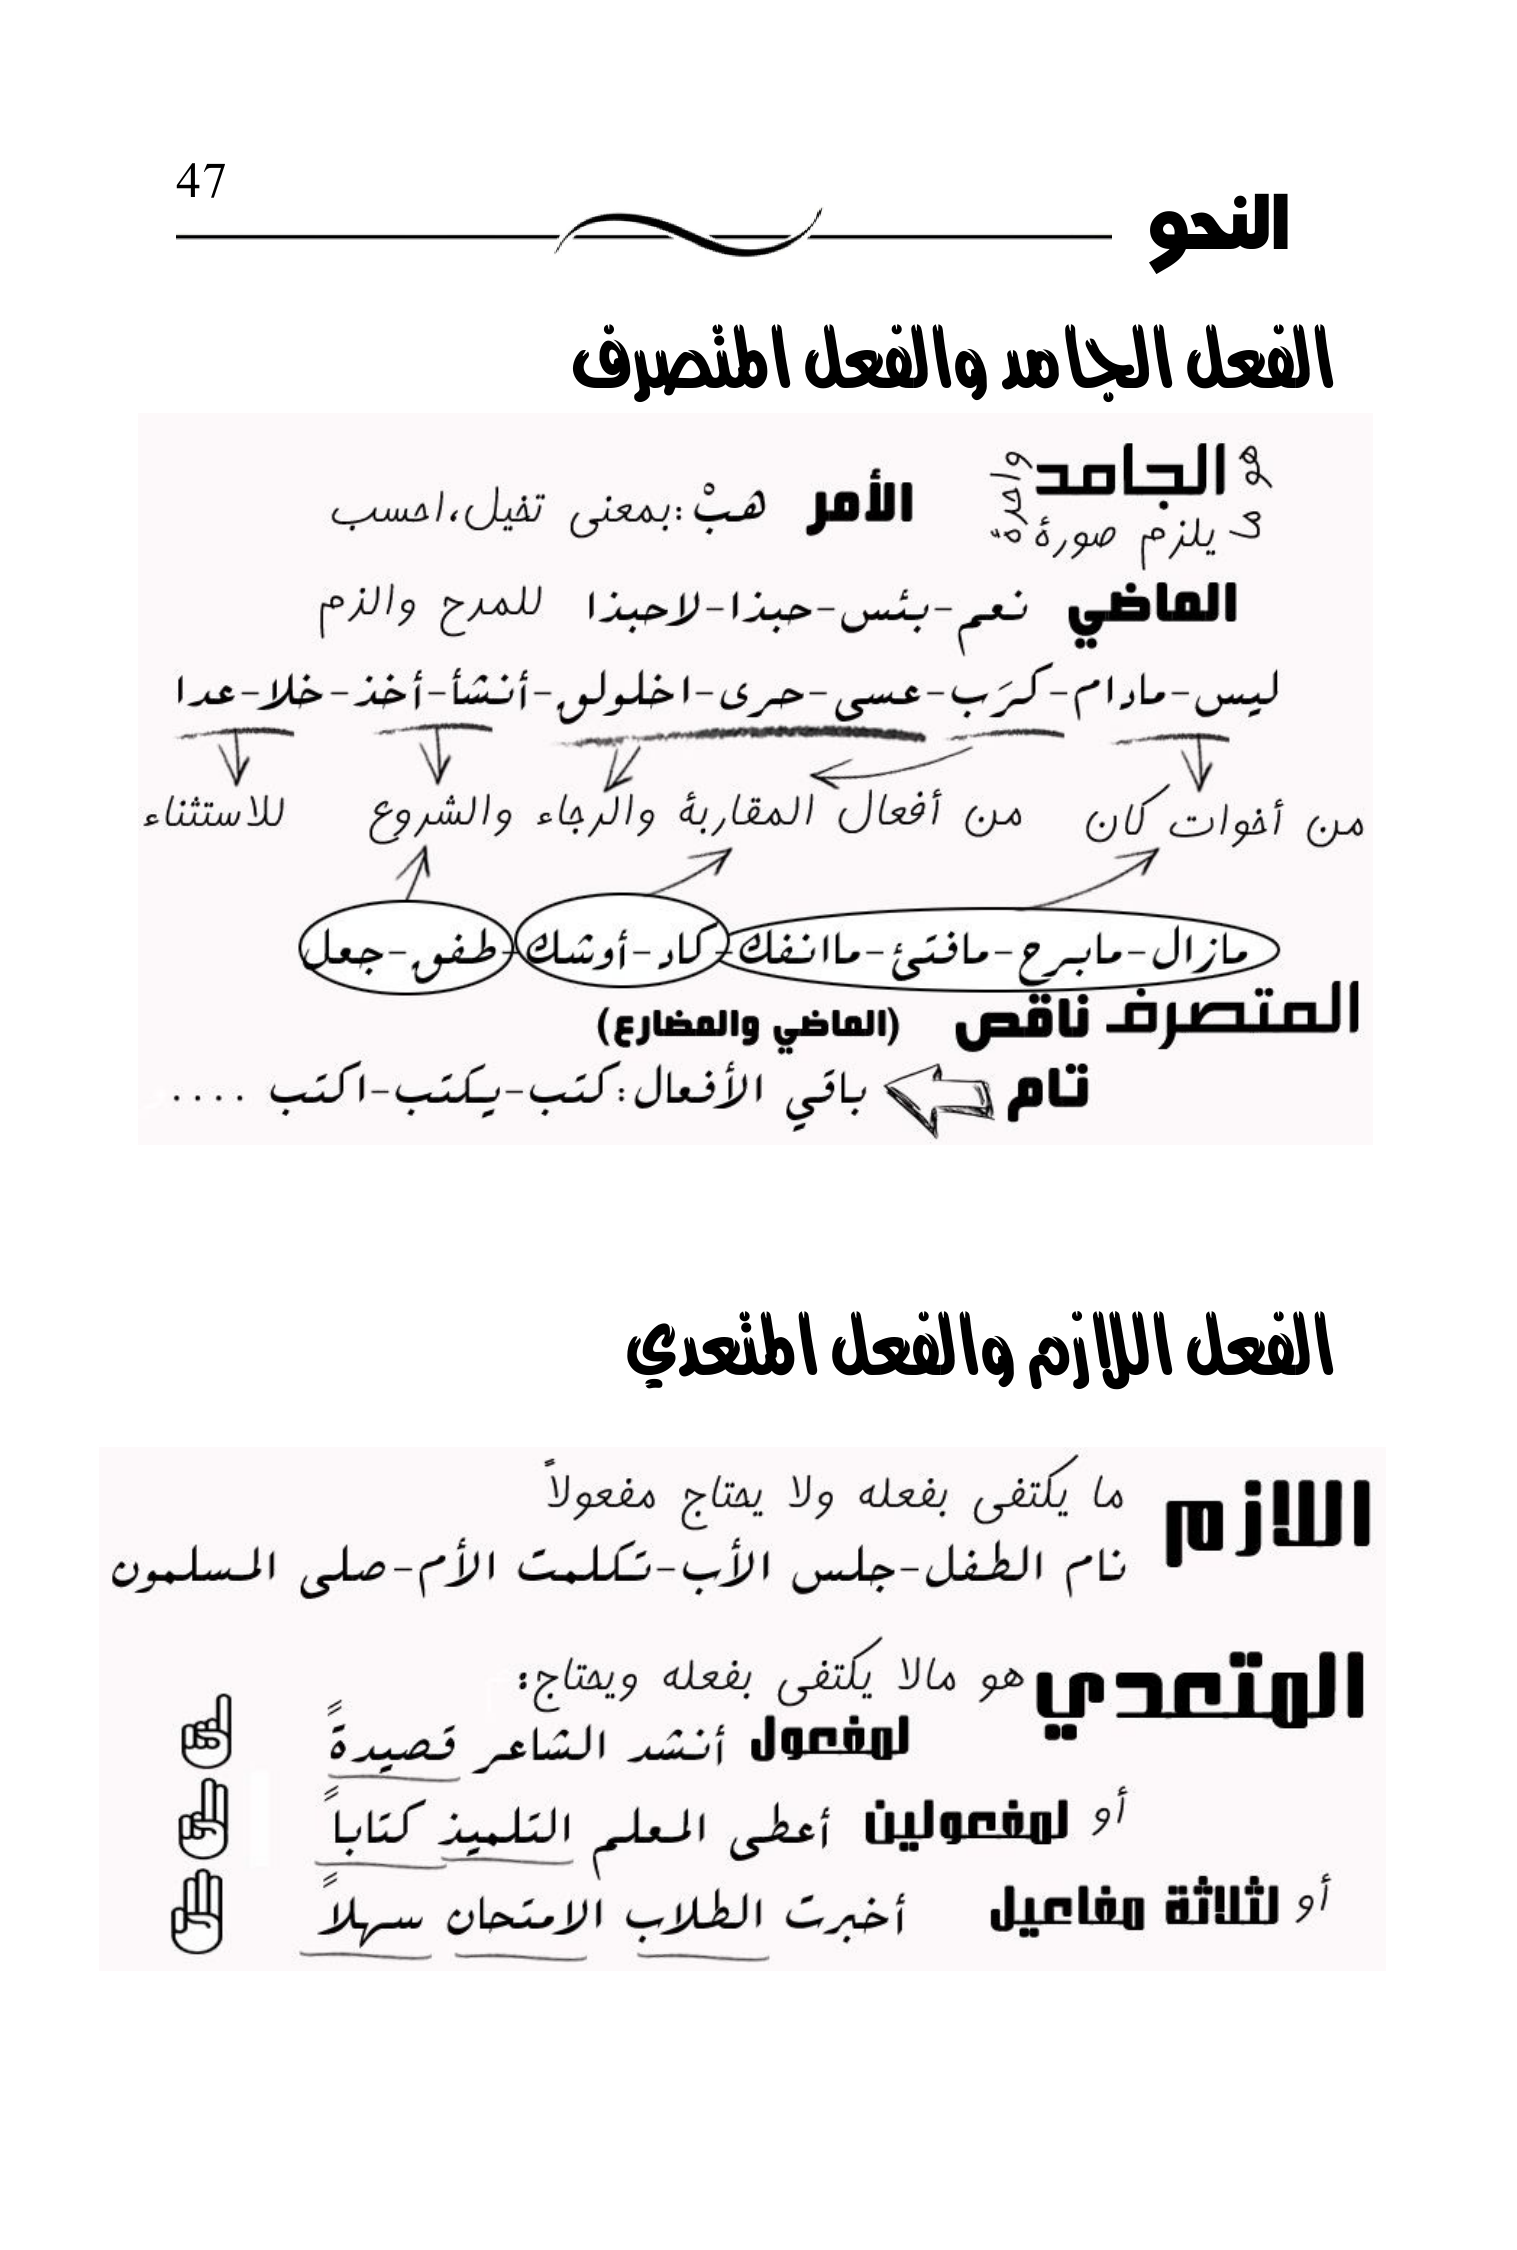 47
النحو
الفعل الجامد والفعل المتصرف
الجامد هو ما يلزم صورة واحدة
الأمر هبْ: بمعنى تخيل، احسب
الماضي نعم-بئس-حبذا-لاحبذا للمدح والذم
ليس-مادام-كرَب-عسى-حرى-اخلولق-أنشأ-أخذ-خلا-عدا
من أخوات كان من أفعال المقاربة والرجاء والشروع للاستثناء
مازال-مابرح-مافتئ-ماانفك-كاد-أوشك-طفق-جعل
المتصرف ناقص (الماضي والمضارع)
تام باقي الأفعال: كتب-يكتب-اكتب ....
الفعل اللازم والفعل المتعدي
اللازم ما يكتفى بفعله ولا يحتاج مفعولاً
نام الطفل-جلس الأب-تكلمت الأم-صلى المسلمون
المتعدي هو مالا يكتفى بفعله ويحتاج:
لمفعول أنشد الشاعر قصيدةً
أو لمفعولين أعطى المعلم التلميذ كتاباً
أو لثلاثة مفاعيل أخبرت الطلاب الامتحان سهلاً